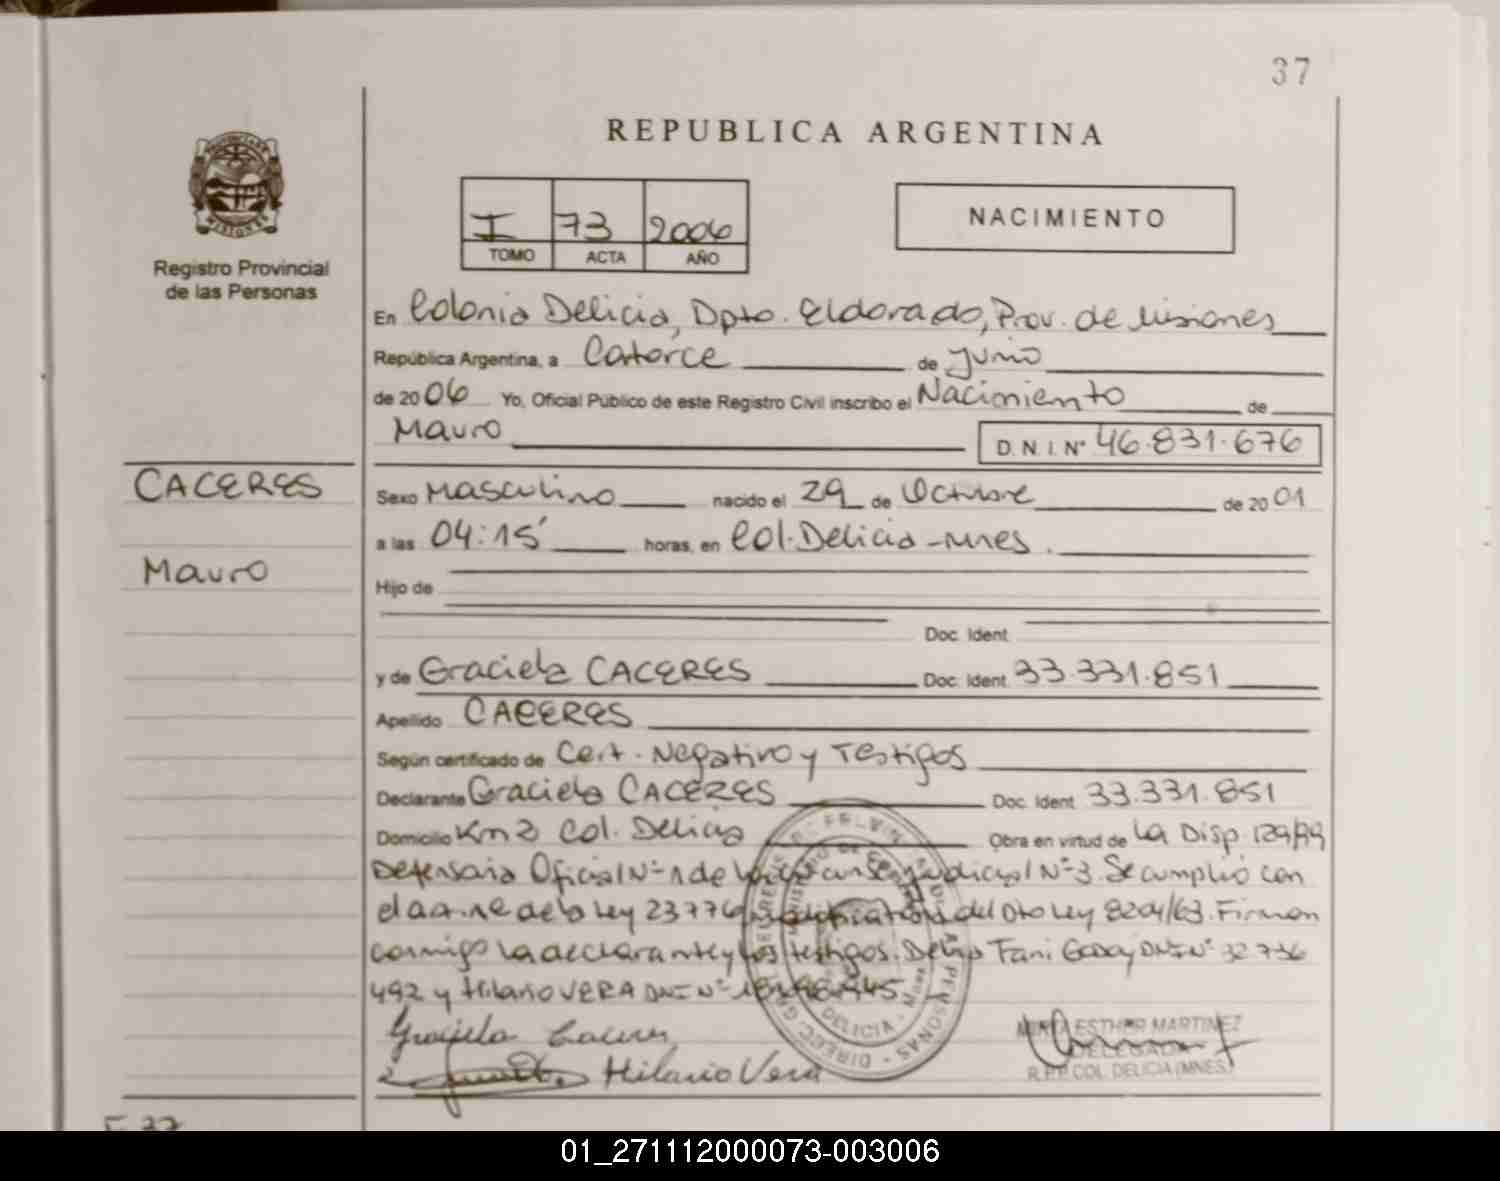 37
REPUBLICA ARGENTINA
I 73 2006
TOMO ACTA AÑO
NACIMIENTO
Registro Provincial
de las Personas
En Colonia Delicia, Dpto. Eldorado, Prov. de Misiones
República Argentina, a Catorce de Junio
de 2006 Yo, Oficial Público de este Registro Civil inscribo el Nacimiento de
Mauro D.N.I. Nº 46.831.676
CACERES
Sexo Masculino nacido el 29 de Octubre de 2001
a las 04:15' horas, en Col. Delicia - Mnes.
Mauro
Hijo de
Doc. Ident.
y de Graciela CACERES Doc. Ident. 33.331.851
Apellido CACERES
Según certificado de Cert. Negativo y Testigos
Declarante Graciela CACERES Doc. Ident. 33.331.851
Domicilio Km 2 Col. Delicia Obra en virtud de La Disp 129/99
Defensoria Oficial Nº 1 de la Judicial Nº 3. Se cumplió con
el de la Ley 23776 del Dto Ley 8204/63. Firman
conmigo la declarante y los testigos. Delia Fani Godoy DNI Nº 32 736
492 y Hilario VERA DNI Nº
Graciela Caceres
Hilario Vera
ESTHER MARTINEZ
DELEGADA
R.P.P. COL. DELICIA (MNES)
01_271112000073-003006